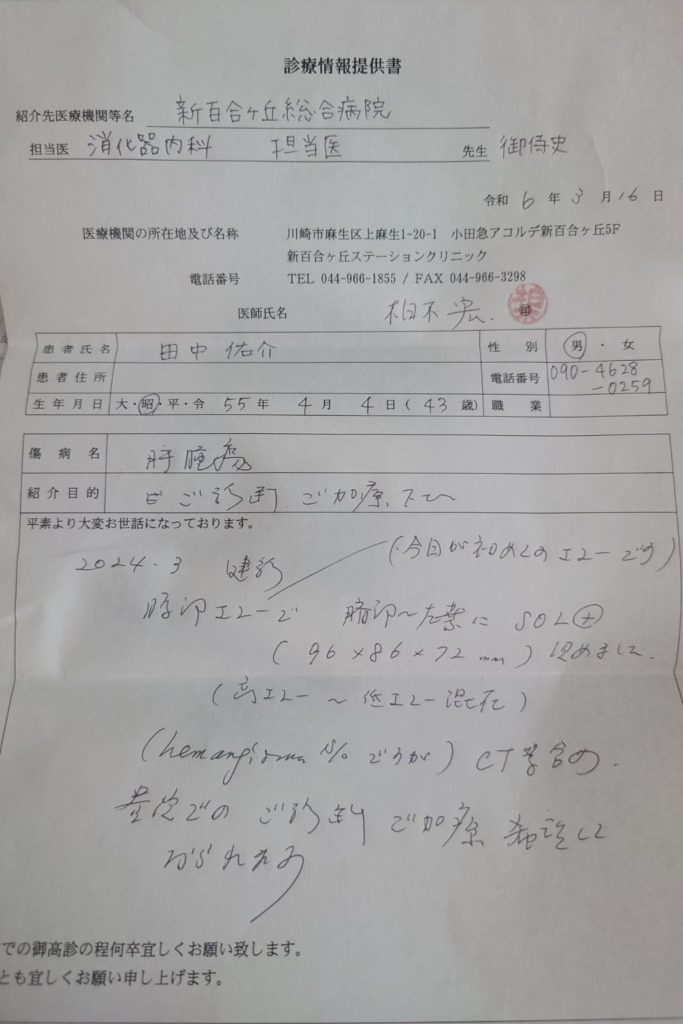 診療情報提供書
紹介先医療機関等名 新百合ヶ丘総合病院
担当医 消化器内科 担当医 先生 御侍史
令和 6 年 3 月 16 日
医療機関の所在地及び名称 川崎市麻生区上麻生1-20-1 小田急アコルデ新百合ヶ丘5F
新百合ヶ丘ステーションクリニック
電話番号 TEL 044-966-1855 / FAX 044-966-3298
医師氏名 宏 ㊞
患者氏名 田中 佑介 性別 男・女
患者住所 電話番号 090-4628
-0259
生年月日 大・昭・平・令 55年 4月 4日(43歳) 職業
傷病名 肝腫瘍
紹介目的 ご診断、ご加療
平素より大変お世話になっております。
(今日が初めてのエコーです)
2024.3 健診
エコーで 左葉に SOL⊕
(96×86×72mm) 認めました
(高エコー〜低エコー混在)
(hemangioma s/o でしょうか) CT等含め
貴院での ご診断 ご加療 希望して
おられます
での御高診の程何卒宜しくお願い致します。
とも宜しくお願い申し上げます。